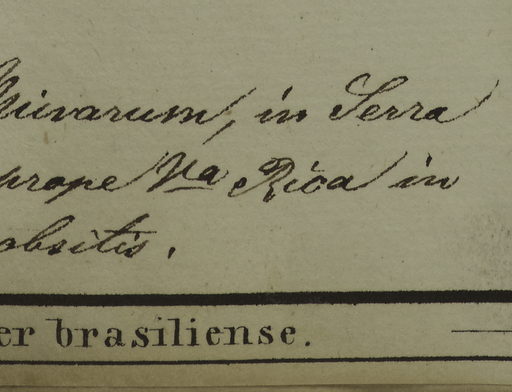 Minarum, in Serra
prope Va Rica in
obsitis.
er brasiliense.